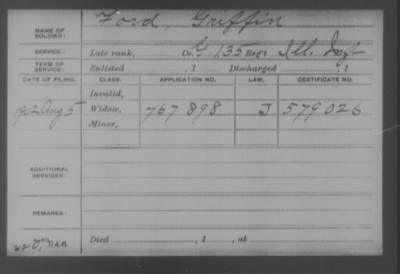 NAME OF SOLDIER: Ford, Griffin
SERVICE: Late rank, Co. G 135 Reg't Ill. Inf
TERM OF SERVICE: Enlisted , 1 Discharged , 1
DATE OF FILING. CLASS. APPLICATION NO. LAW. CERTIFICATE NO.
Invalid,
1902 Aug 5 Widow, 767 898 J 579026
Minor,
ADDITIONAL SERVICES:
REMARKS:
Died , 1 , at